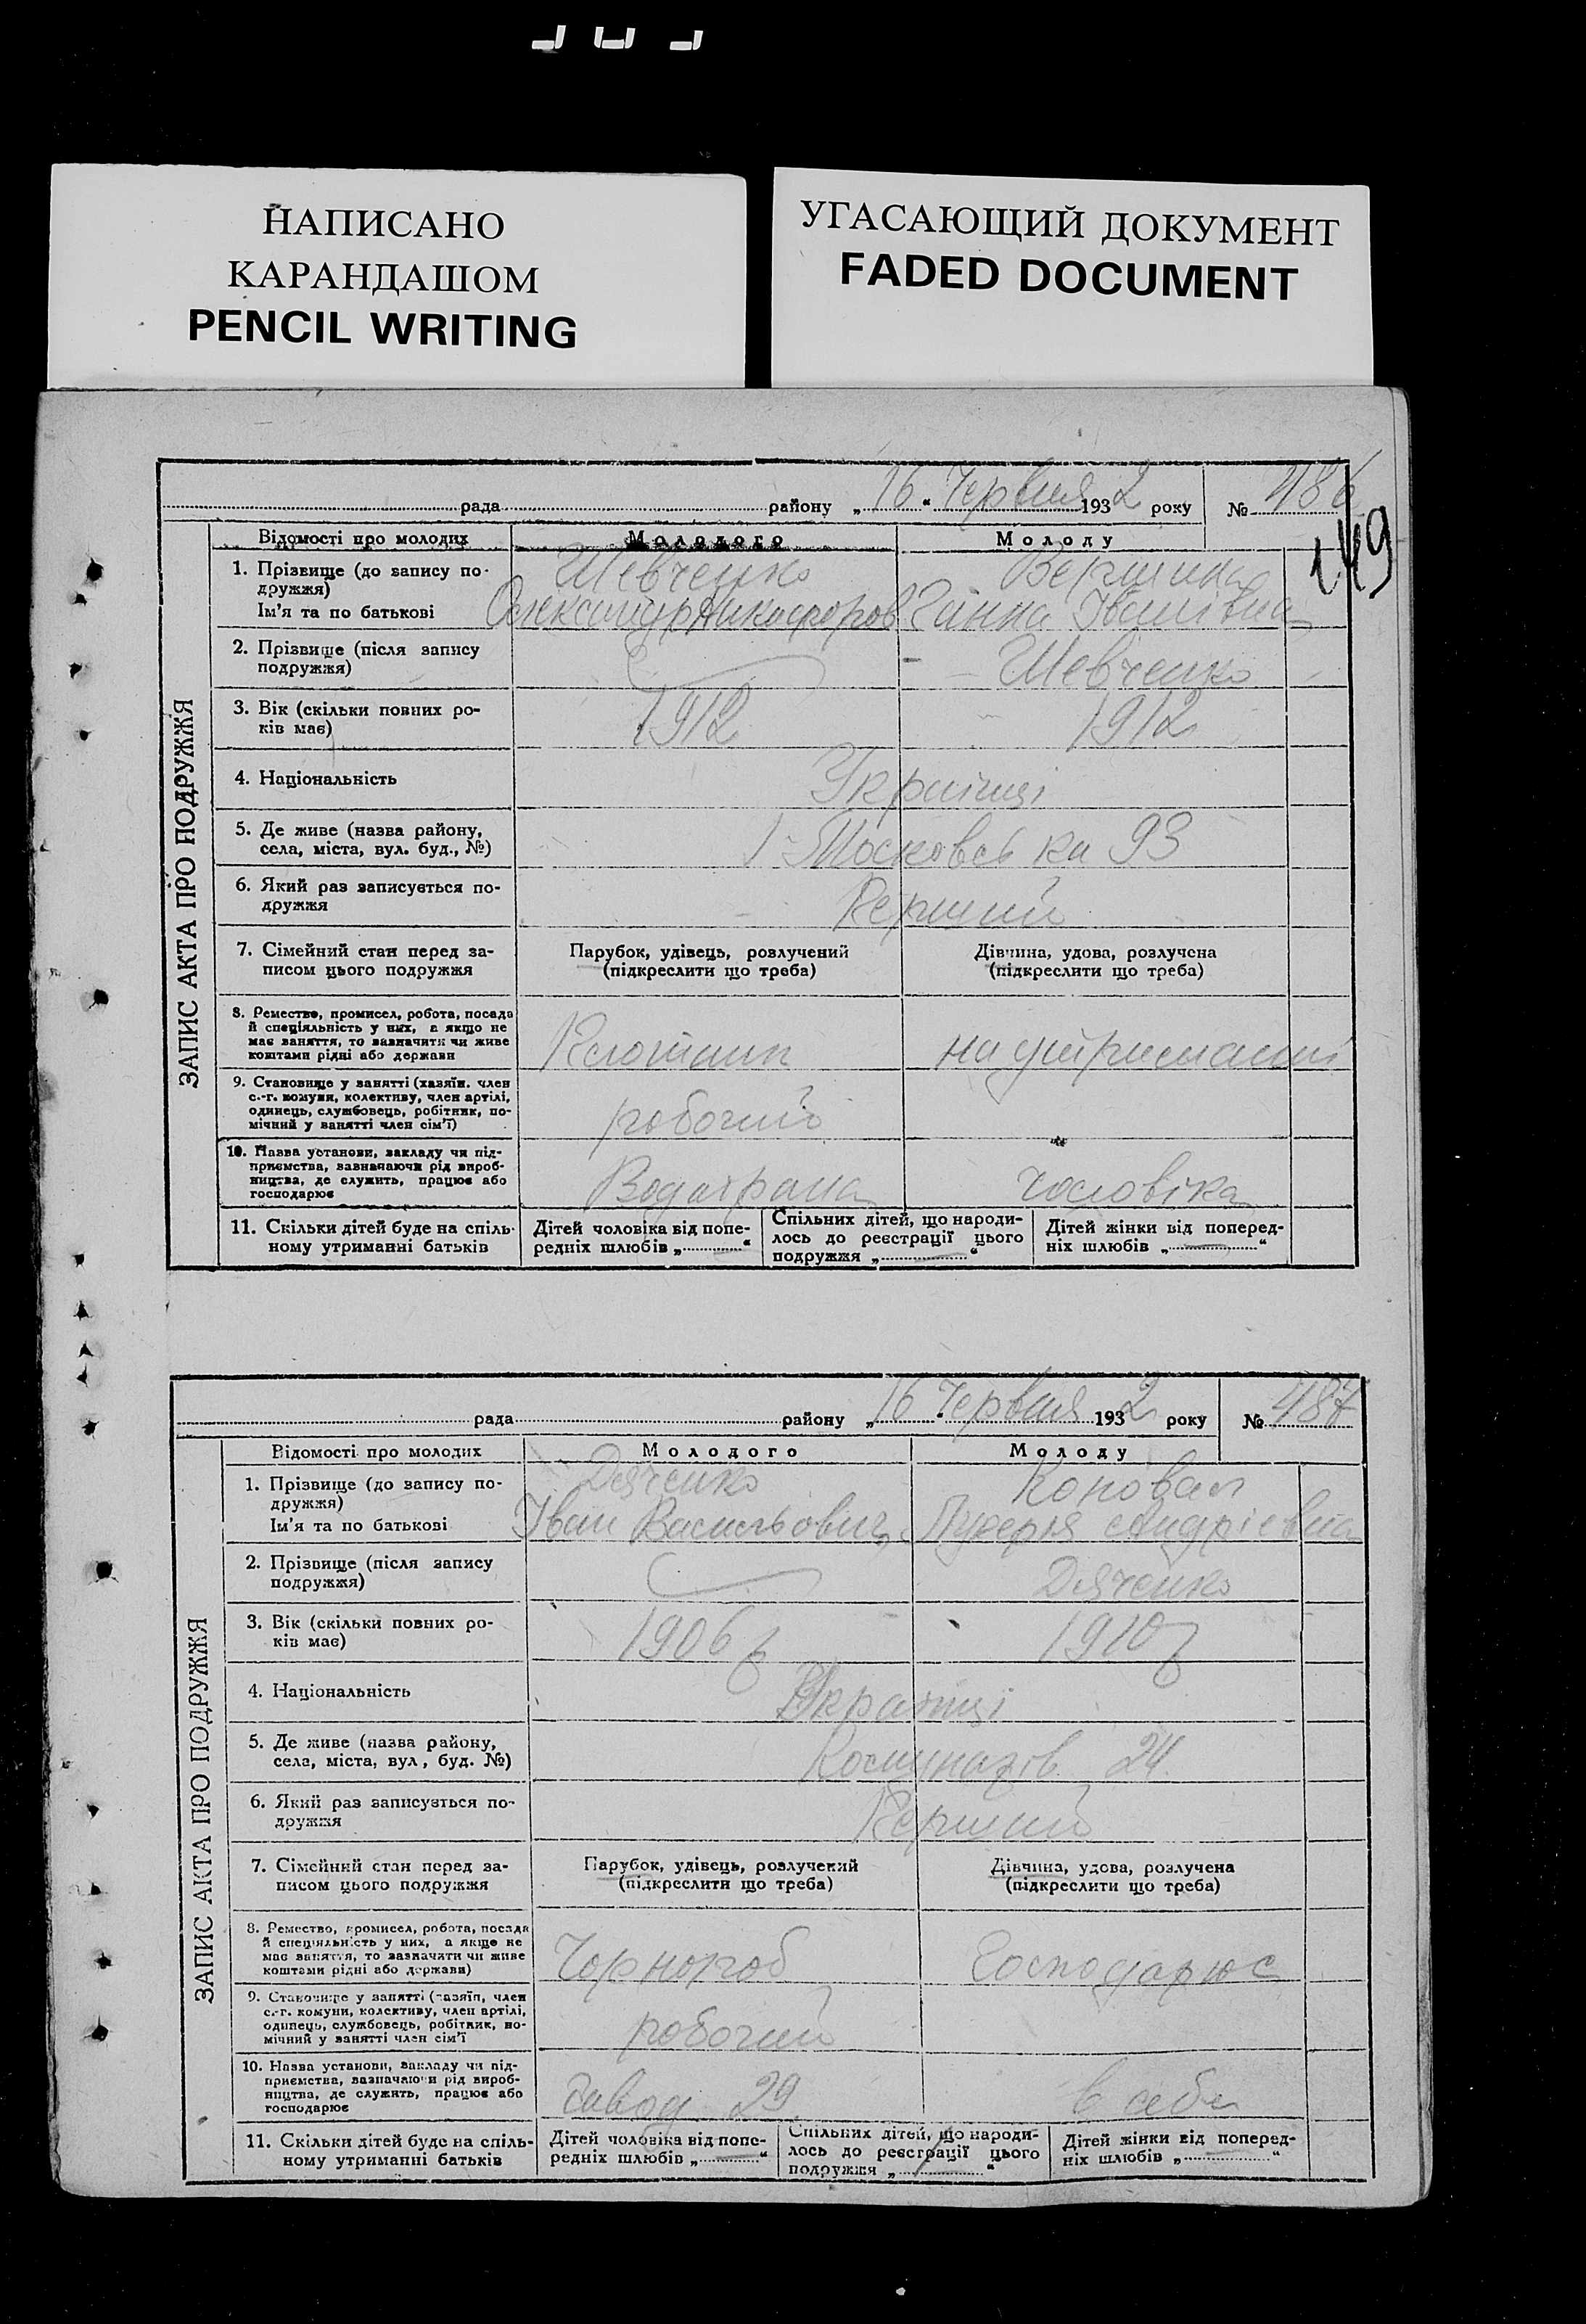 НАПИСАНО
КАРАНДАШОМ
PENCIL WRITING
УГАСАЮЩИЙ ДОКУМЕНТ
FADED DOCUMENT
рада району „16“ Червня 1932 року № 486
149
ЗАПИС АКТА ПРО ПОДРУЖЖЯ
Відомості про молодих Молодого Молоду
1. Прізвище (до запису по- Шевченко
дружжя)
Ім'я та по батькові Олександр Никифоров Ганна Іванівна
2. Прізвище (після запису
подружжя) Шевченко
3. Вік (скільки повних ро- 1912 1912
ків має)
4. Національність Українці
5. Де живе (назва району,
села, міста, вул. буд., №) 1-Московська 93
6. Який раз записується по- Перший
дружжя
7. Сімейний стан перед за- Парубок, удівець, розлучений Дівчина, удова, розлучена
писом цього подружжя (підкреслити що треба) (підкреслити що треба)
8. Ремество, промисел, робота, посада
й спеціяльність у них, а якщо не
має заняття, то зазначити чи живе
коштами рідні або держави на утриманні
9. Становище у занятті (хазяїн. член
с.-г. комуни, колективу, член артілі,
одинець, службовець, робітник, по-
мічний у занятті член сім'ї) робочий
10. Назва установи, закладу чи під-
приємства, зазначаючи рід вироб-
ництва, де служить, працює або
господарює чоловіка
11. Скільки дітей буде на спіль-
ному утриманні батьків
Дітей чоловіка від попе-
редніх шлюбів „ “
Спільних дітей, що народи-
лось до реєстрації цього
подружжя „ “
Дітей жінки від поперед-
ніх шлюбів „ “
рада району „16“ Червня 1932 року № 487
ЗАПИС АКТА ПРО ПОДРУЖЖЯ
Відомості про молодих Молодого Молоду
1. Прізвище (до запису по- Дяченко Коновал
дружжя)
Ім'я та по батькові Іван Васильович Лукерія Андрієвна
2. Прізвище (після запису
подружжя) Дяченко
3. Вік (скільки повних ро- 1906 р 1910 р
ків має)
4. Національність Українці
5. Де живе (назва району,
села, міста, вул, буд. №) Комунарів 24
6. Який раз записується по- Перший
дружжя
7. Сімейний стан перед за- Парубок, удівець, розлучений Дівчина, удова, розлучена
писом цього подружжя (підкреслити що треба) (підкреслити що треба)
8. Ремество, промисел, робота, посада
й спеціяльність у них, а якщо не
має заняття, то зазначити чи живе
коштами рідні або держави) Чорнороб Господарює
9. Становище у занятті (хазяїн, член
с.-г. комуни, колективу, член артілі,
одинець, службовець, робітник, по-
мічний у занятті член сім'ї робочий
10. Назва установи, закладу чи під-
приємства, зазначаючи рід вироб-
ництва, де служить, працює або
господарює завод 29 в себе
11. Скільки дітей буде на спіль-
ному утриманні батьків
Дітей чоловіка від попе-
редніх шлюбів „ “
Спільних дітей, що народи-
лось до реєстрації цього
подружжя „ “
Дітей жінки від поперед-
ніх шлюбів „ “